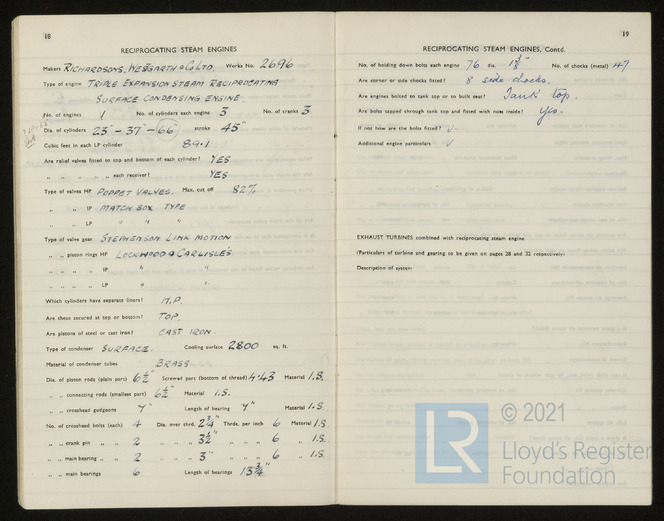 18
RECIPROCATING STEAM ENGINES
Makers RICHARDSONS, WESTGARTH & Co LTD. Works No. 2696
Type of engine TRIPLE EXPANSION STEAM RECIPROCATING
SURFACE CONDENSING ENGINE
No. of engines 1 No. of cylinders each engine 3 No. of cranks 3
Dia. of cylinders 23" - 37" - 66" stroke 45"
Cubic feet in each LP cylinder 89.1
Are relief valves fitted to top and bottom of each cylinder? YES
" " " " " each receiver? YES
Type of valves HP POPPET VALVES. Max. cut off 82%
" " IP MATCH BOX TYPE
" " LP " " "
Type of valve gear STEPHENSON LINK MOTION
" " piston rings HP LOCKWOOD & CARLISLE'S
" " " IP " "
" " " LP " "
Which cylinders have separate liners? H.P.
Are these secured at top or bottom? TOP.
Are pistons of steel or cast iron? CAST IRON.
Type of condenser SURFACE. Cooling surface 2800 sq. ft.
Material of condenser tubes BRASS
Dia. of piston rods (plain part) 6½" Screwed part (bottom of thread) 4.43 Material I.S.
" " connecting rods (smallest part) 6½" Material I.S.
" " crosshead gudgeons 7" Length of bearing 7" Material I.S.
No. of crosshead bolts (each) 4 Dia. over thrd. 2¾" Thrds. per inch 6 Material I.S.
" " crank pin " " 2 " " " 3½" " " " 6 " I.S.
" " main bearing " " 2 " " " 3" " " " 6 " I.S.
" " main bearings 6 Length of bearings 13¾"
19
RECIPROCATING STEAM ENGINES, Contd.
No. of holding down bolts each engine 76 dia. No. of chocks (metal) 47
Are corner or side chocks fitted? 8 side chocks.
Are engines bolted to tank top or to built seat? Tank top.
Are bolts tapped through tank top and fitted with nuts inside? Yes.
If not how are the bolts fitted?
Additional engine particulars
EXHAUST TURBINES combined with reciprocating steam engine
(Particulars of turbine and gearing to be given on pages 28 and 32 respectively)
Description of system
LR
© 2021
Lloyd's Register
Foundation